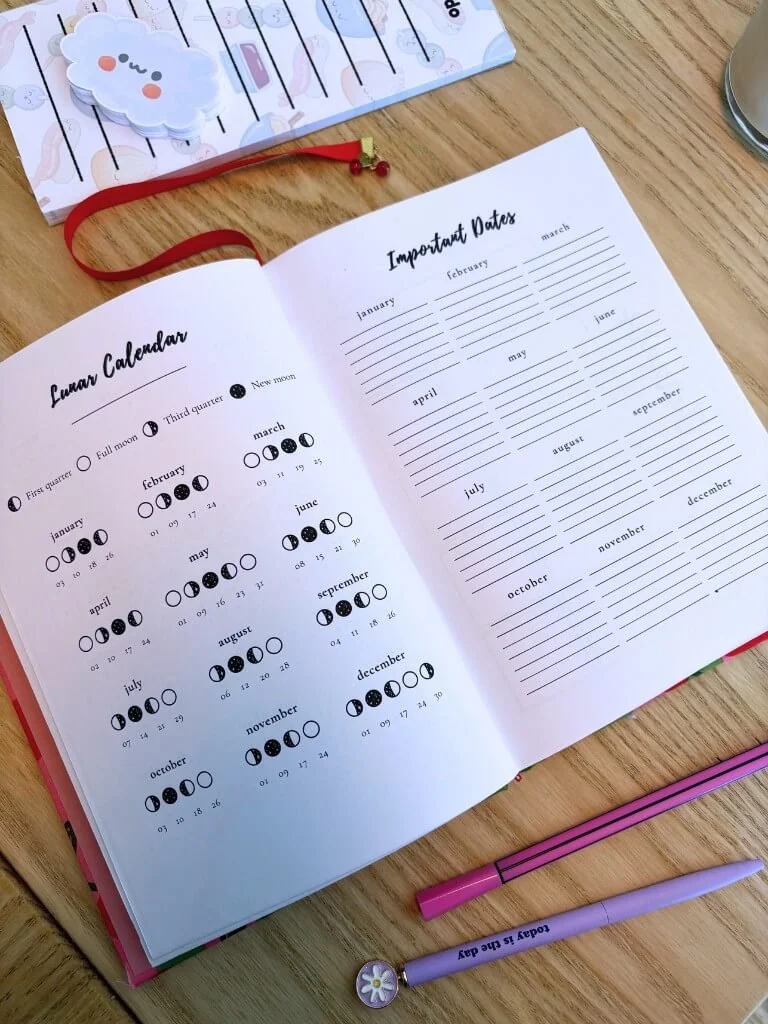 do
Lunar Calendar
First quarter Full moon Third quarter New moon
january february march
03 10 18 26 01 09 17 24 03 11 19 25
april may june
02 10 17 24 01 09 16 23 31 08 15 21 30
july august september
07 14 21 29 06 12 20 28 04 11 18 26
october november december
03 10 18 26 01 09 17 24 01 09 17 24 30
Important Dates
january february march
april may june
july august september
october november december
today is the day